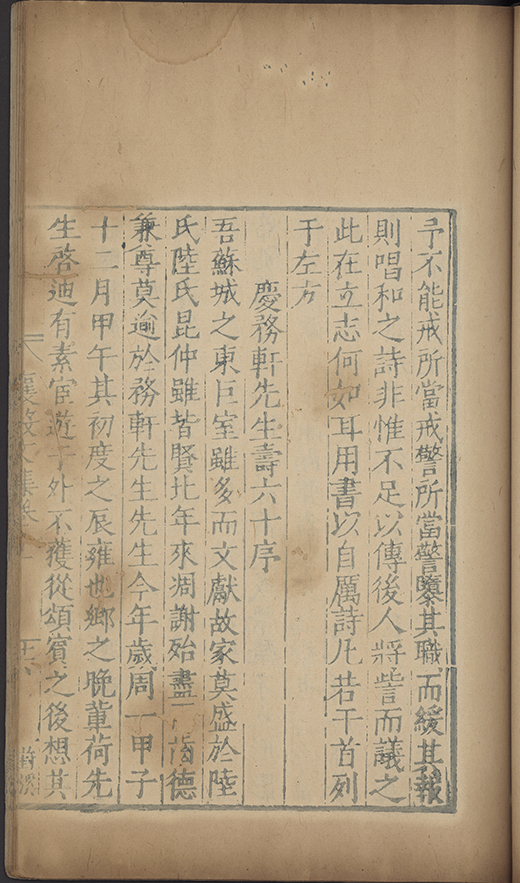 予不能戒所當戒警所當警隳其職而緩其報
則唱和之詩非惟不足以傳後人將訾而議之
此在立志何如耳用書以自厲詩凡若干首列
于左方
慶務軒先生壽六十序
吾蘇城之東巨室雖多而文獻故家莫盛於陸
氏陸氏昆仲雖皆賢比年來凋謝殆盡而齒德
兼尊莫逾於務軒先生先生今年歲周一甲子
十二月甲午其初度之辰雍也鄉之晚輩荷先
生啓迪有素宦遊于外不獲從頌賓之後想其
襄毅文集卷